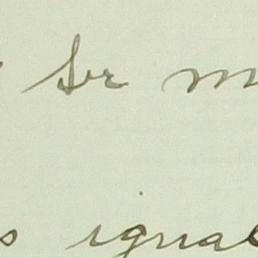 Sr m
s igual